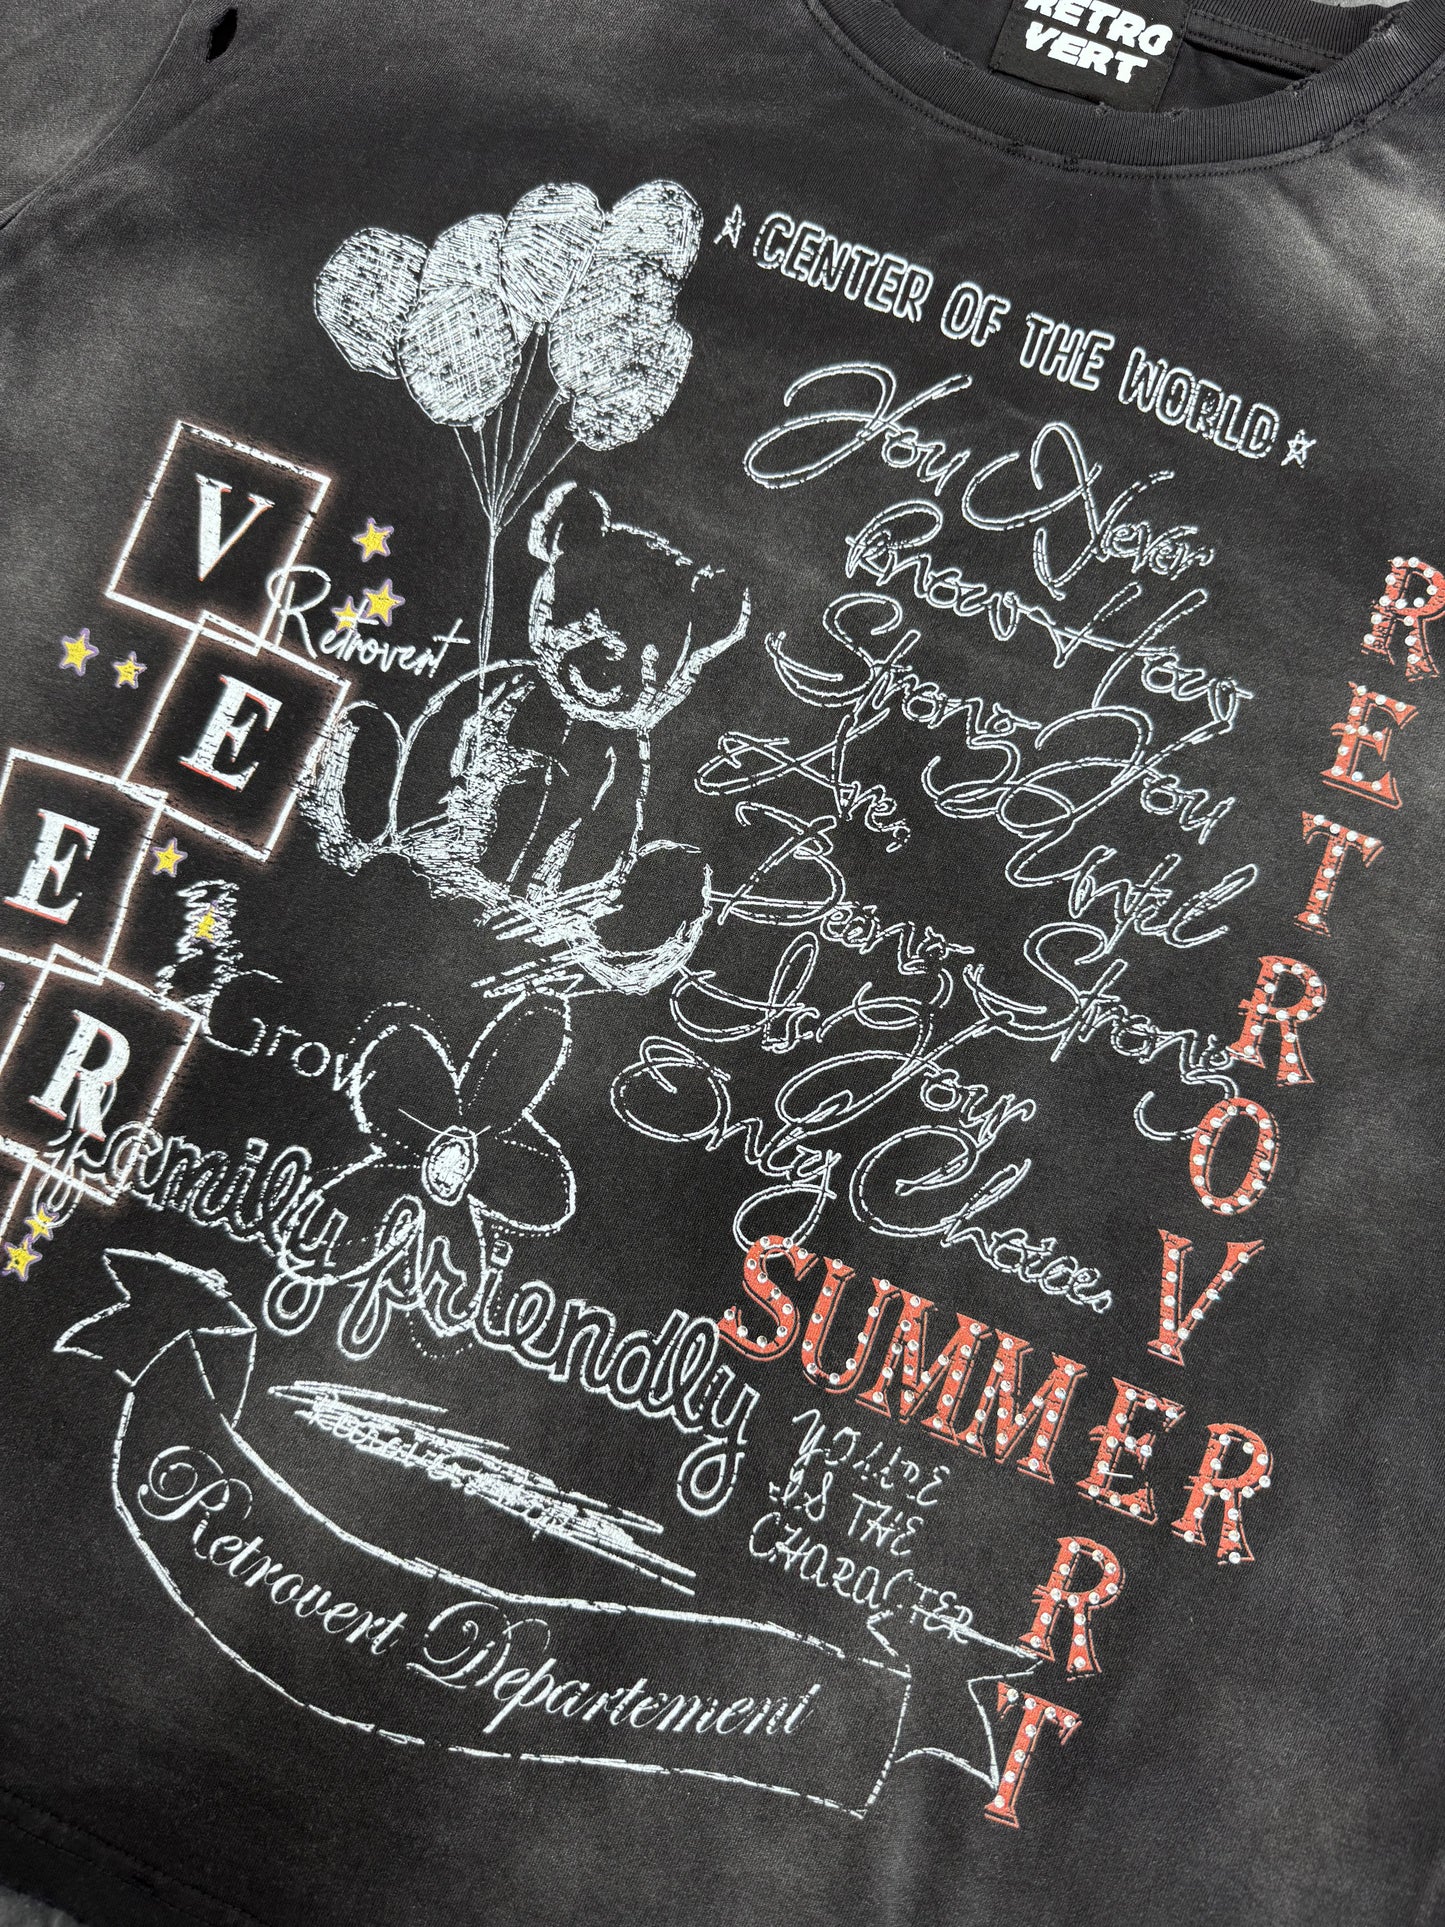 RETRO
VERT
CENTER OF THE WORLD
You Never
Know How
Strong You
Are, Until
Being Strong
Is Your
Only Choices
V
E
E
R
Retrovert
Grow
family friendly
RETROVERT
SUMMER
IS THE
CHARACTER
Retrovert Departement